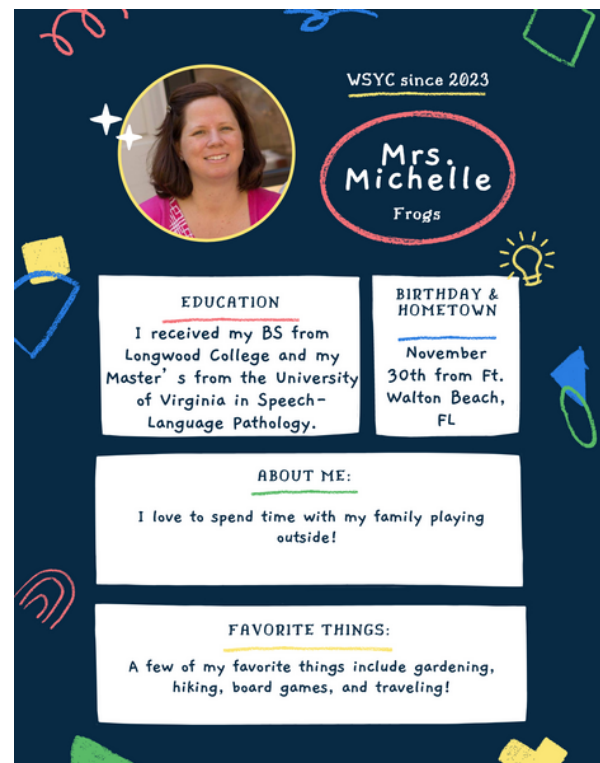 WSYC since 2023
Mrs.
Michelle
Frogs
EDUCATION
I received my BS from
Longwood College and my
Master's from the University
of Virginia in Speech-
Language Pathology.
BIRTHDAY &
HOMETOWN
November
30th from Ft.
Walton Beach,
FL
ABOUT ME:
I love to spend time with my family playing
outside!
FAVORITE THINGS:
A few of my favorite things include gardening,
hiking, board games, and traveling!